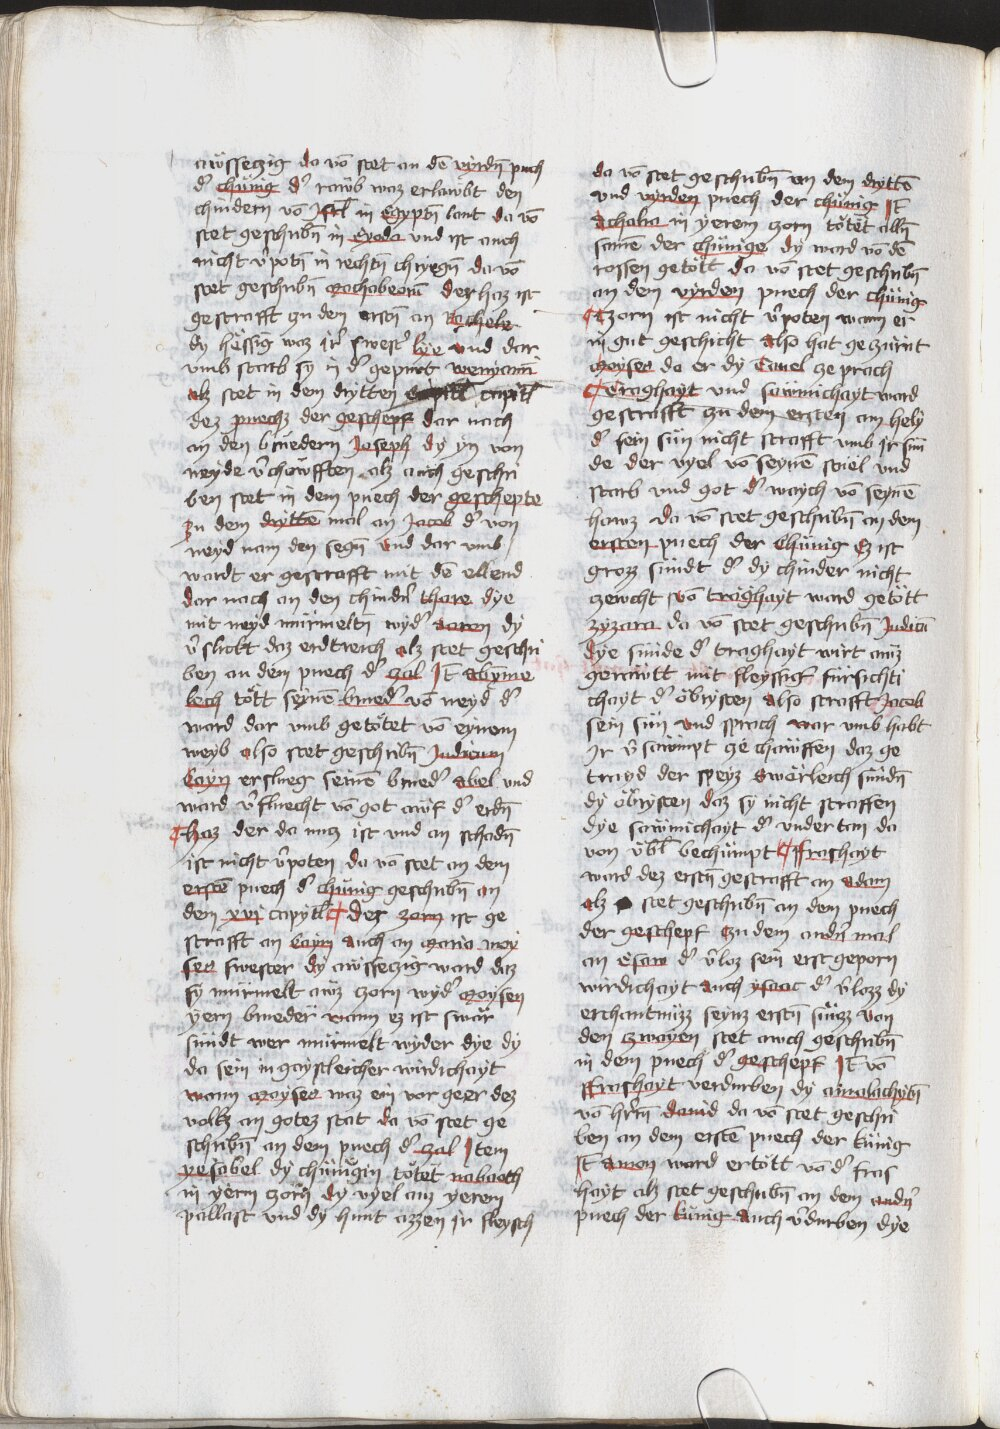 awsseczig da võ stet an dē vyrdn̄ puch
d' chünig d' rawb waz erlawbt den
chindern võ Jsrl̄ in Egyptn̄ lant da võ
stet geschribn̄ in Exodo vnd ist auch
nicht v'potn̄ in rechtn̄ chryegn̄ da võ
stet geschribn̄ Machabeorū der haz ist
gestrafft zu den erstn̄ an Rachele
dy hëssig waz ir' swest' lye vnd dar
vmb starb sy in d' gepurt wenyamī
alz stet in dem drytten capitl̄
dez puechz der geschepf dar nach
an den bruedern Joseph dy yn von
neyde v'chawfften alz auch geschri
ben stet in dem puech der geschepfte
zu dem drytt̄e mal an Jacob d' von
neyd nam den segn̄ vnd dar vmb
wardt er gestrafft mit dē ellend
dar nach an den chindn̄ thare dye
mit neyd mürmeltn̄ wyd' aaron dy
v'slickt daz erdtreich alz stet geschri
ben an dem puech d' zal Jt̄ abyme
lech tött seynē brued' võ neyd d'
ward dar vmb getötet võ eynem
weyb also stet geschribn̄ Judicum
Cayn erslueg seinē brued' abel vnd
ward v'fluecht võ got awf d' erdn̄
haz der da nucz ist vnd an schadn̄
ist nicht v'poten da võ stet an dem
erstē puech d' chünig geschribn̄ an
dem xvj capytl̄ der zorn ist ge
strafft an Cayn auch an maria moy
ses swester dy awsseczig ward daz
sy mürmelt awz zorn wyd' moysen
yern brueder wann ez ist swär
sündt wer mürmelt wyder dye dy
da sein in gaystleicher wirdichayt
wann moyses waz ein vor geer dez
volkz an gotez stat da võ stet ge
schribn̄ an dem puech d' zal Jtem
yesabel dy chünigin tötet naboth
in yerm zorn dy vyel am yerem
pallast vnd dy hunt azzen ir fleysch
da võ stet geschribn̄ an dem drytt̄e
vnd vyrden puech der chünig Jt̄
Athalia in yerem zorn tötet alln̄
samē der chünige dy ward võ dē
rossen getött da võ stet geschribn̄
an dem vyrden puech der chünig
zorn ist nicht v'poten wann er
in gut geschicht also hat gezürnt
moyses da er dy tauel ze prach
Traghayt vnd sawmichayt ward
gestrafft zu dem ersten am hely
d' sein sün nicht strafft vmb ir sün
de der vyel võ seynē stuel vnd
starb vnd got d' waych võ seynē
hawz da võ stet geschribn̄ an dem
ersten puech der chünig Ez ist
grozz sündt d' dy chinder nicht
zewcht võ traghayt ward getött
zyzara da võ stet geschribn̄ Judicū
dye sünde d' traghayt wirt awz
gerewtt mit fleyssig' fürsichti
chayt d' öbrysten also strafft Jacob
sein sün vnd sprach war vmb habt
Jr v'sawmpt ze chawffen daz ge
trayd der speyz Swärleich sündn̄
dy öbrysten daz sy nicht straffen
dye sawmichayt d' vndertan da
von vbl̄ bechümpt ffrashayt
ward dez erstn̄ gestrafft an adam
alz stet geschribn̄ an dem puech
der geschepf zu dem andn̄ mal
an Esaw d' v'loz sein erst geporn
wirdichayt auch ysaac d' v'lozz dy
erchantnüzz seynz erstn̄ sünzz von
den zwayen stet auch geschribn̄
in dem puech d' geschepf Jt̄ võ
ffrashayt verdurben dy amalachytn̄
võ hr̄n dauid da võ stet geschri
ben an dem erstē puech der künig
Jt̄ amon ward ertött võ d' fras
hayt alz stet geschribn̄ an dem andn̄
puech der künig auch v'durben dye